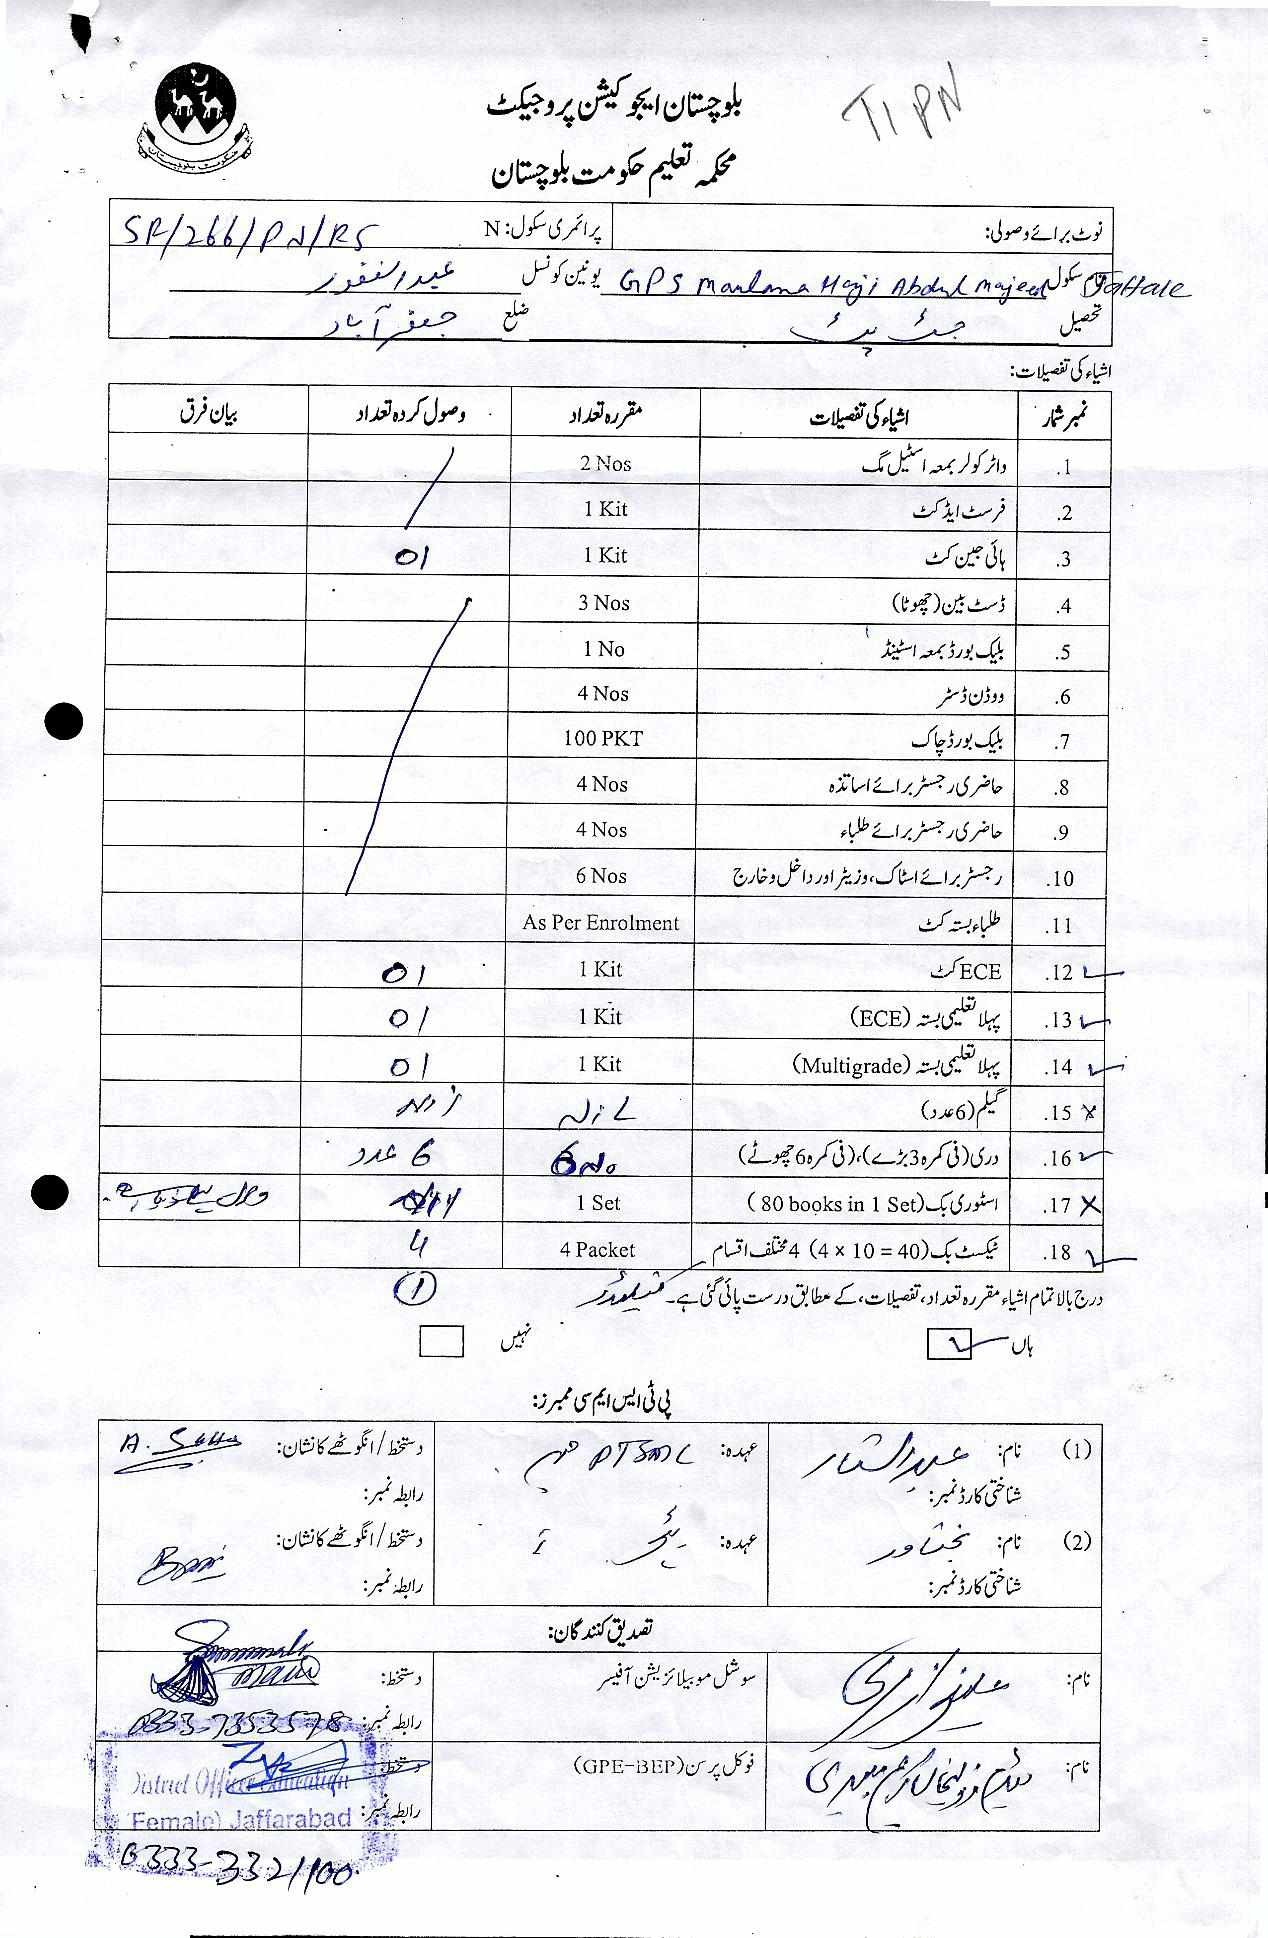 بلوچستان ایجوکیشن پروجیکٹ
T1 PN
محکمہ تعلیم حکومت بلوچستان
حکومت بلوچستان
نوٹ برائے وصولی: پرائمری سکول: N SR/266/PN/RS
سکول GPS Maulana Haji Abdul Majeed یونین کونسل عبدالغفور
تحصیل ضلع جعفر آباد
اشیاء کی تفصیلات:
نمبر شمار اشیاء کی تفصیلات مقررہ تعداد وصول کردہ تعداد بیان فرق
1. واٹر کولر بمعہ اسٹیل مگ 2 Nos
2. فرسٹ ایڈ کٹ 1 Kit
3. ہائی جین کٹ 1 Kit 01
4. ڈسٹ بین (چھوٹا) 3 Nos
5. بلیک بورڈ بمعہ اسٹینڈ 1 No
6. ووڈن ڈسٹر 4 Nos
7. بلیک بورڈ چاک 100 PKT
8. حاضری رجسٹر برائے اساتذہ 4 Nos
9. حاضری رجسٹر برائے طلباء 4 Nos
10. رجسٹر برائے اسٹاک، وزیٹر اور داخل و خارج 6 Nos
11. طلباء بستہ کٹ As Per Enrolment
12. ECE کٹ 1 Kit 01
13. پہلا تعلیمی بستہ (ECE) 1 Kit 01
14. پہلا تعلیمی بستہ (Multigrade) 1 Kit 01
15. گیلم (6 عدد)
16. دری (فی کمرہ 3 بڑے)، (فی کمرہ 6 چھوٹے) 6 No 6 عدد
17. اسٹوری بک (80 books in 1 Set) 1 Set
18. ٹیکسٹ بک (4 × 10 = 40) 4 مختلف اقسام 4 Packet 4
درج بالا تمام اشیاء مقررہ تعداد، تفصیلات، کے مطابق درست پائی گئی ہے۔ 1
ہاں نہیں
پی ٹی ایس ایم سی ممبرز:
(1) نام: عبدالستار عہدہ: PTSMC دستخط/انگوٹھے کا نشان:
شناختی کارڈ نمبر: رابطہ نمبر:
(2) نام: بختاور عہدہ: دستخط/انگوٹھے کا نشان:
شناختی کارڈ نمبر: رابطہ نمبر:
تصدیق کنندگان:
نام: سوشل موبیلائزیشن آفیسر دستخط:
رابطہ نمبر: 0333-7353578
نام: فوکل پرسن (GPE-BEP) دستخط:
رابطہ نمبر:
District Officer Education
(Female) Jaffarabad
0333-3321100